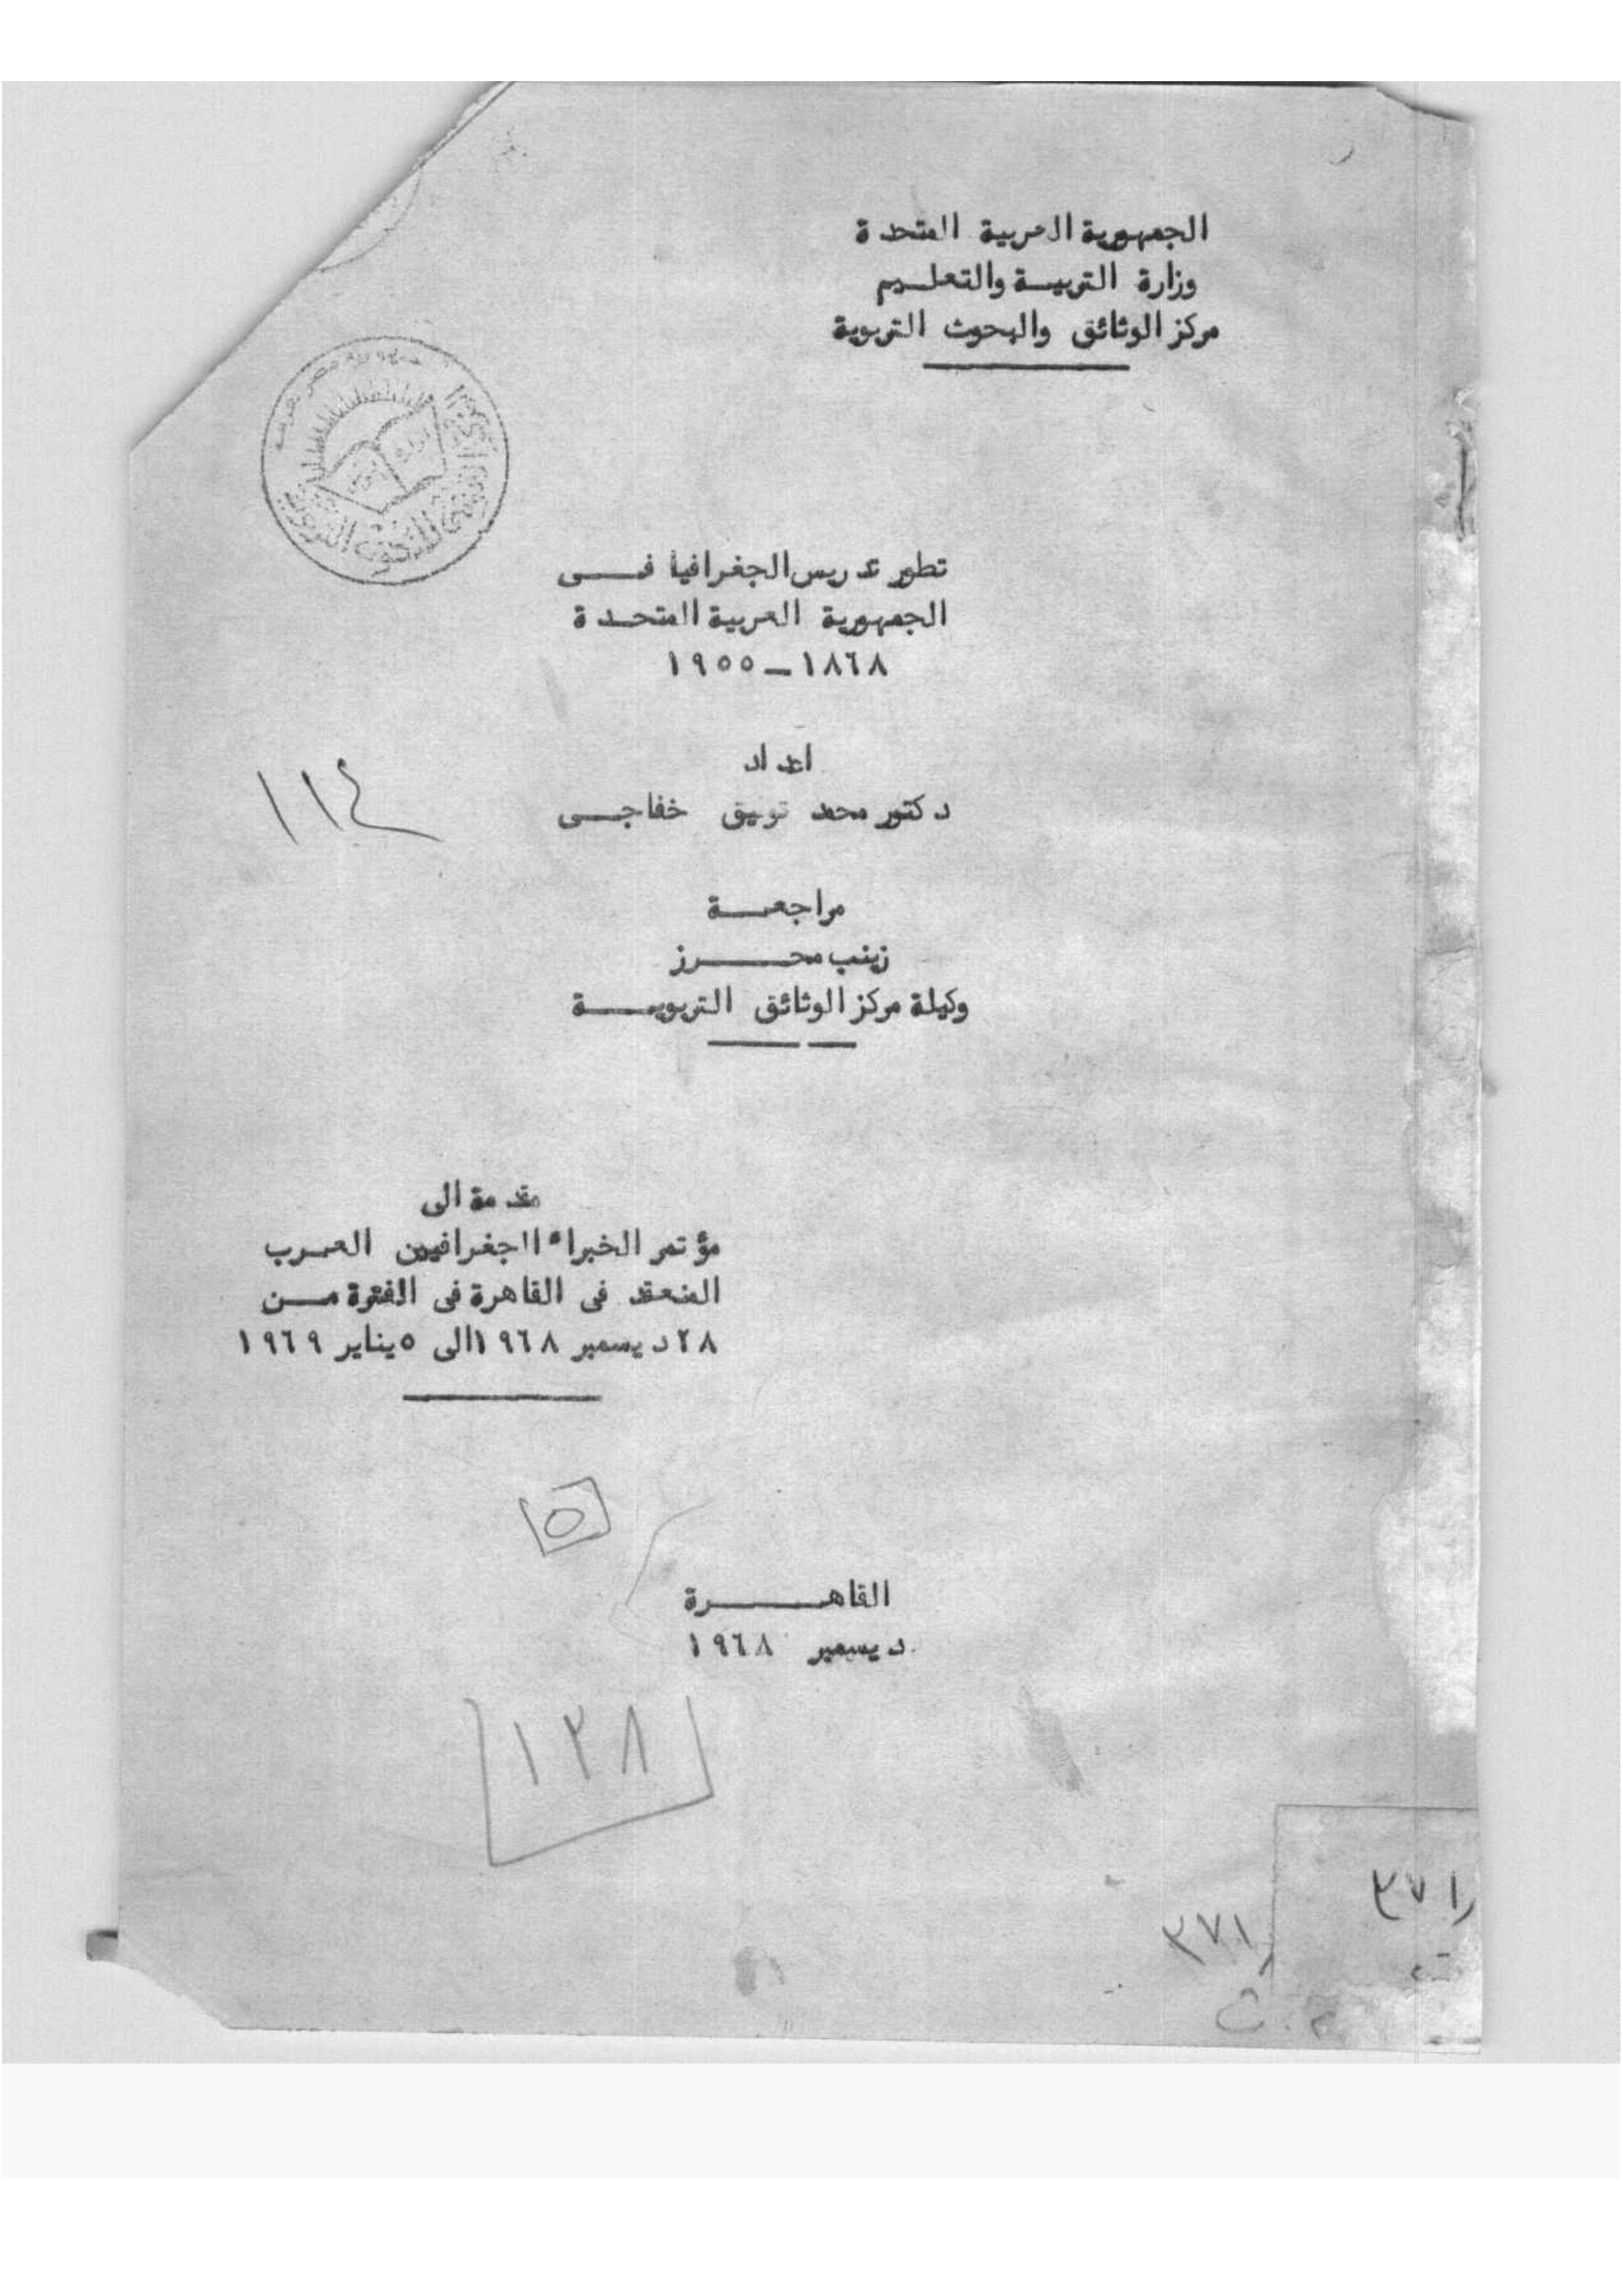 الجمهورية العربية المتحدة
وزارة التربيــة والتعلــيم
مركز الوثائق والبحوث التربوية
جمهورية مصر العربية
تطور تدريس الجغرافيا فــى
الجمهورية العربية المتحــدة
١٨٦٨ ــ ١٩٥٥
اعداد
١١٤
دكتور محمد توفيق خفاجــى
مراجعــة
زينب محــــرز
وكيلة مركز الوثائق التربويــــة
مقدمة الى
مؤتمر الخبراء الجغرافيين العــرب
المنعقد فى القاهرة فى الفترة مــن
٢٨ ديسمبر ١٩٦٨ الى ٥ يناير ١٩٦٩
٥
القاهــــــرة
ديسمبر ١٩٦٨
١٢٨
٣٧١
٣٧١